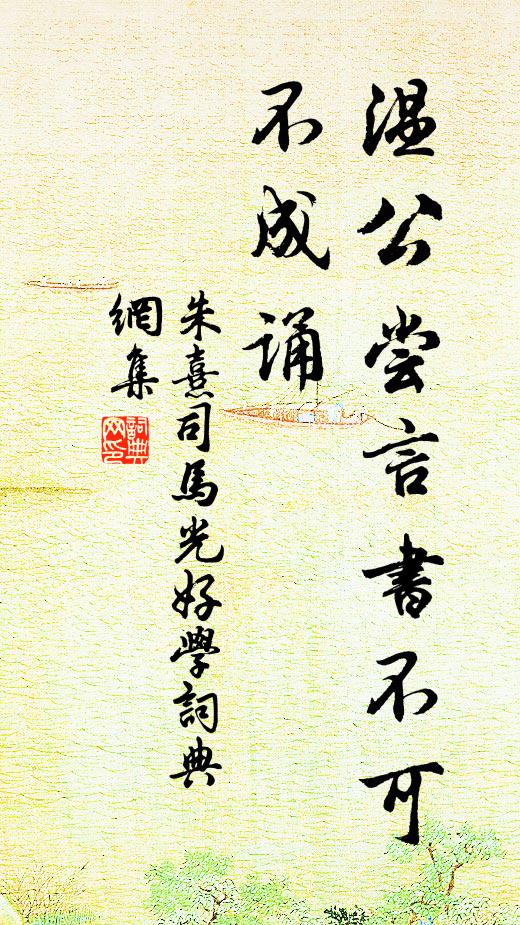 温公尝言書不可
不成诵
朱熹司馬光好學詞典
網集
詞典
网印